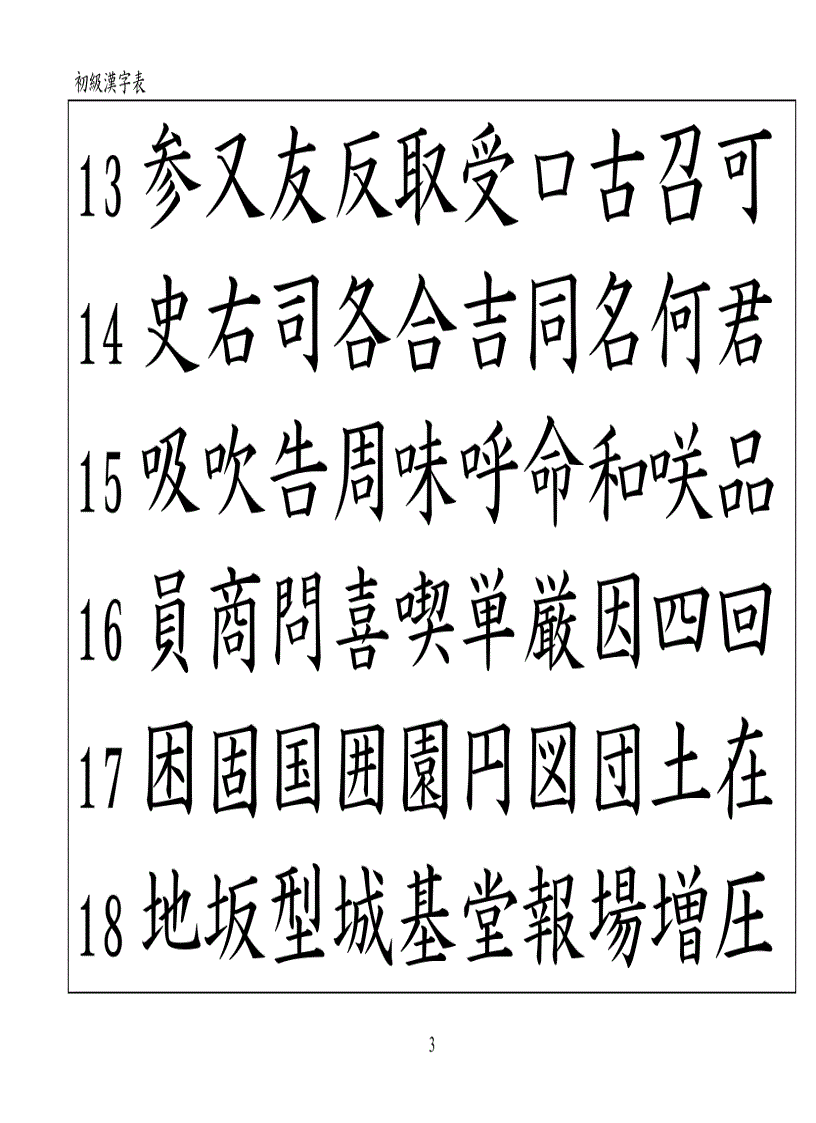 初級漢字表
13 参又友反取受口古召可
14 史右司各合吉同名何君
15 吸吹告周味呼命和咲品
16 員商問喜喫単厳因四回
17 困固国囲園円図団土在
18 地坂型城基堂報場増圧
3